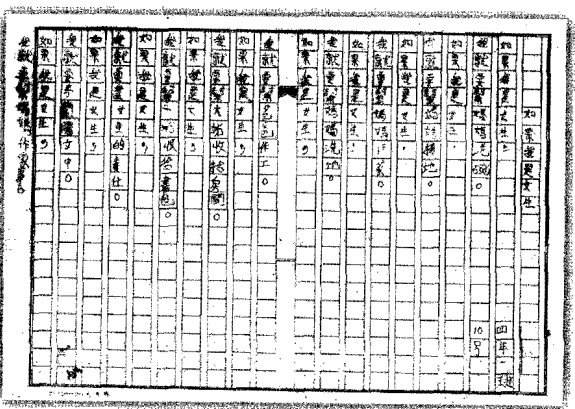 如果我是女生
四年 班
10号
如果我是女生，
我就要幫媽媽洗碗。
如果我是女生，
我就要幫媽媽掃地。
如果我是女生，
我就要幫媽媽 。
如果我是女生，
我就要幫媽媽洗地。
如果我是女生，
我就要幫爸爸作工。
如果我是女生，
我就要幫 收拾房間。
如果我是女生，
我就要幫 收 書包。
如果我是女生，
我就要 女生的責任。
如果我是女生，
我就要 女中。
如果我是女生，
我就要幫媽媽作家事。